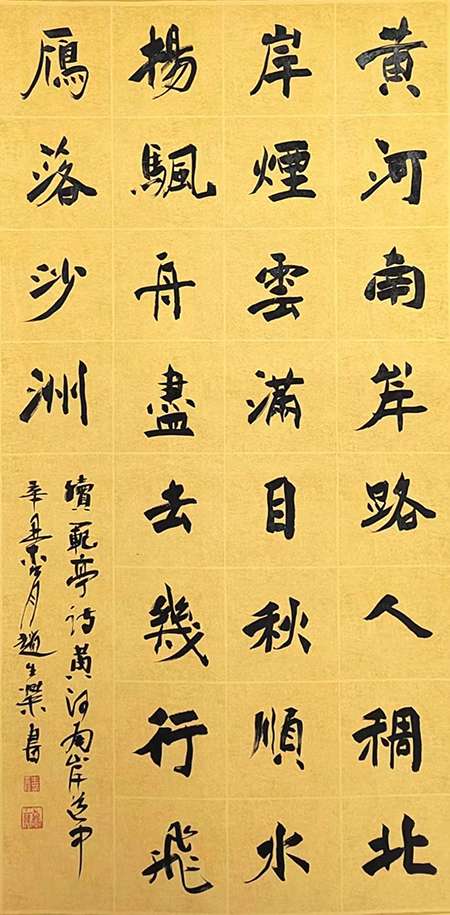 黃河南岸路人稠北
岸煙雲滿目秋順水
揚颿舟盡去幾行飛
鴈落沙洲
續範亭詩黃河南岸道中
辛丑杏月趙生業書